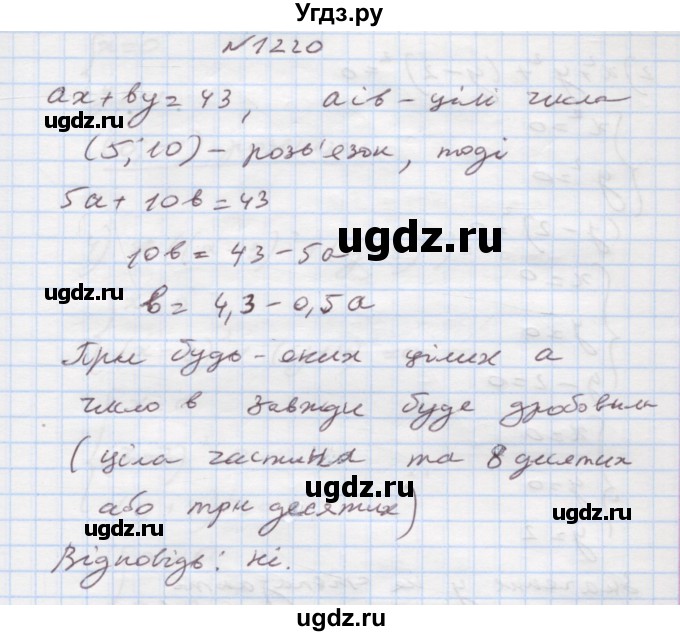 Угдз.ру
№1220
ax+by=43, a і b – цілі числа
ugdz.ru ugdz.ru
(5; 10) – розв'язок, тоді
5a + 10b = 43
ugdz.ru
10b = 43 – 5a
ugdz.ru ugdz.ru
b = 4,3 – 0,5a
При будь-яких цілих a
число b завжди буде дробовим
ugdz.ru ugdz.ru
(ціла частина та 8 десятих
ugdz.ru
або три десятих)
Відповідь: ні.
ugdz.ru ugdz.ru
ugdz.ru